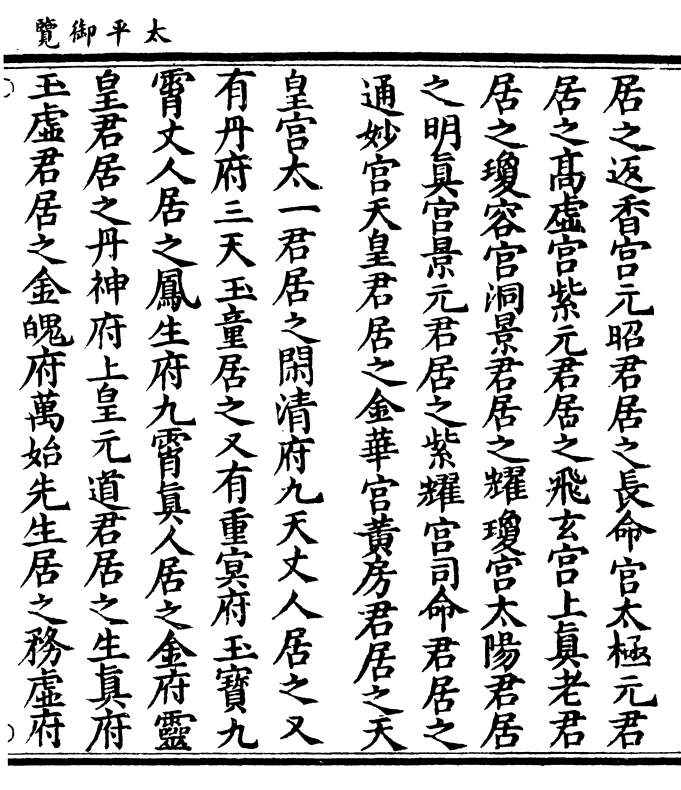 太平御覽
居之返香宮元昭君居之長命宮太極元君
居之高虛宮紫元君居之飛玄宮上眞老君
居之瓊容宮洞景君居之耀瓊宮太陽君居
之明眞宮景元君居之紫耀宮司命君居之
通妙宮天皇君居之金華宮黃房君居之天
皇宮太一君居之閑清府九天丈人居之又
有丹府三天玉童居之又有重冥府玉寶九
霄丈人居之鳳生府九霄眞人居之金府靈
皇君居之丹神府上皇元道君居之生眞府
玉虛君居之金魄府萬始先生居之務虛府